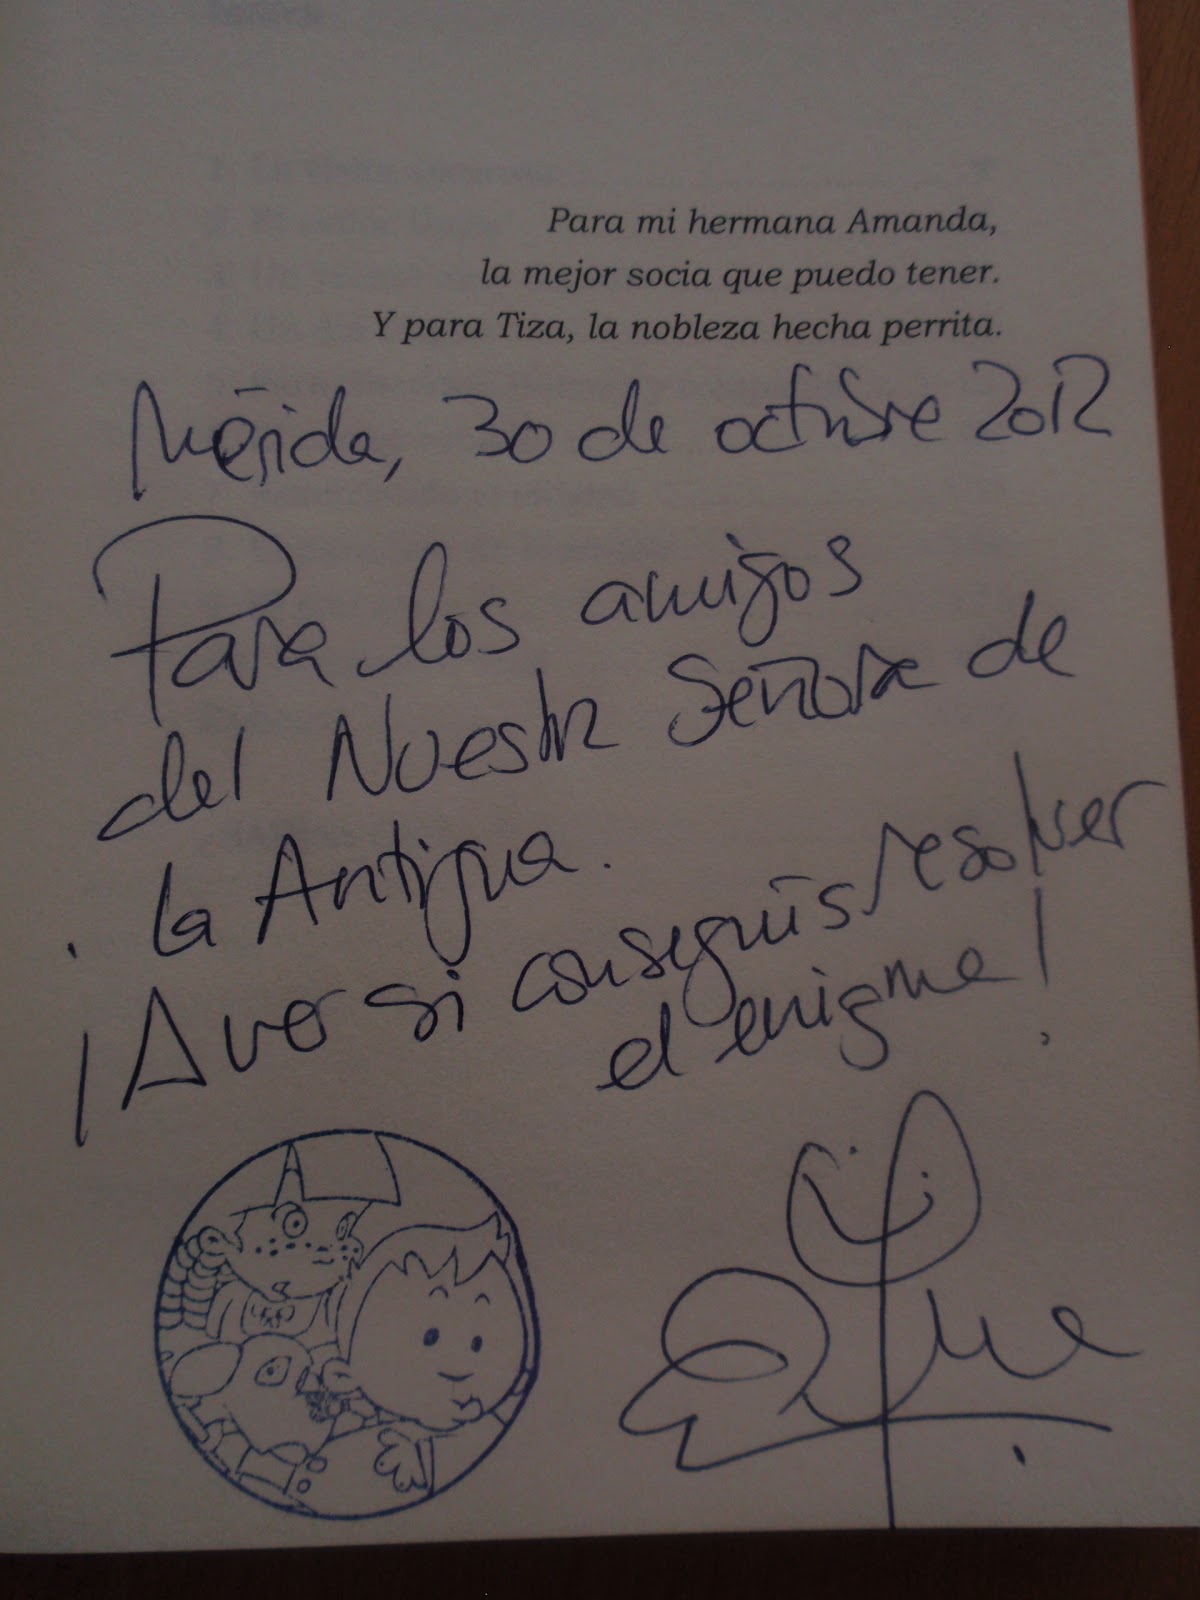 Para mi hermana Amanda,
la mejor socia que puedo tener.
Y para Tiza, la nobleza hecha perrita.
Mérida, 30 de octubre 2012
Para los amigos
del Nuestra Señora de
la Antigua.
¡A ver si conseguís resolver
el enigma!